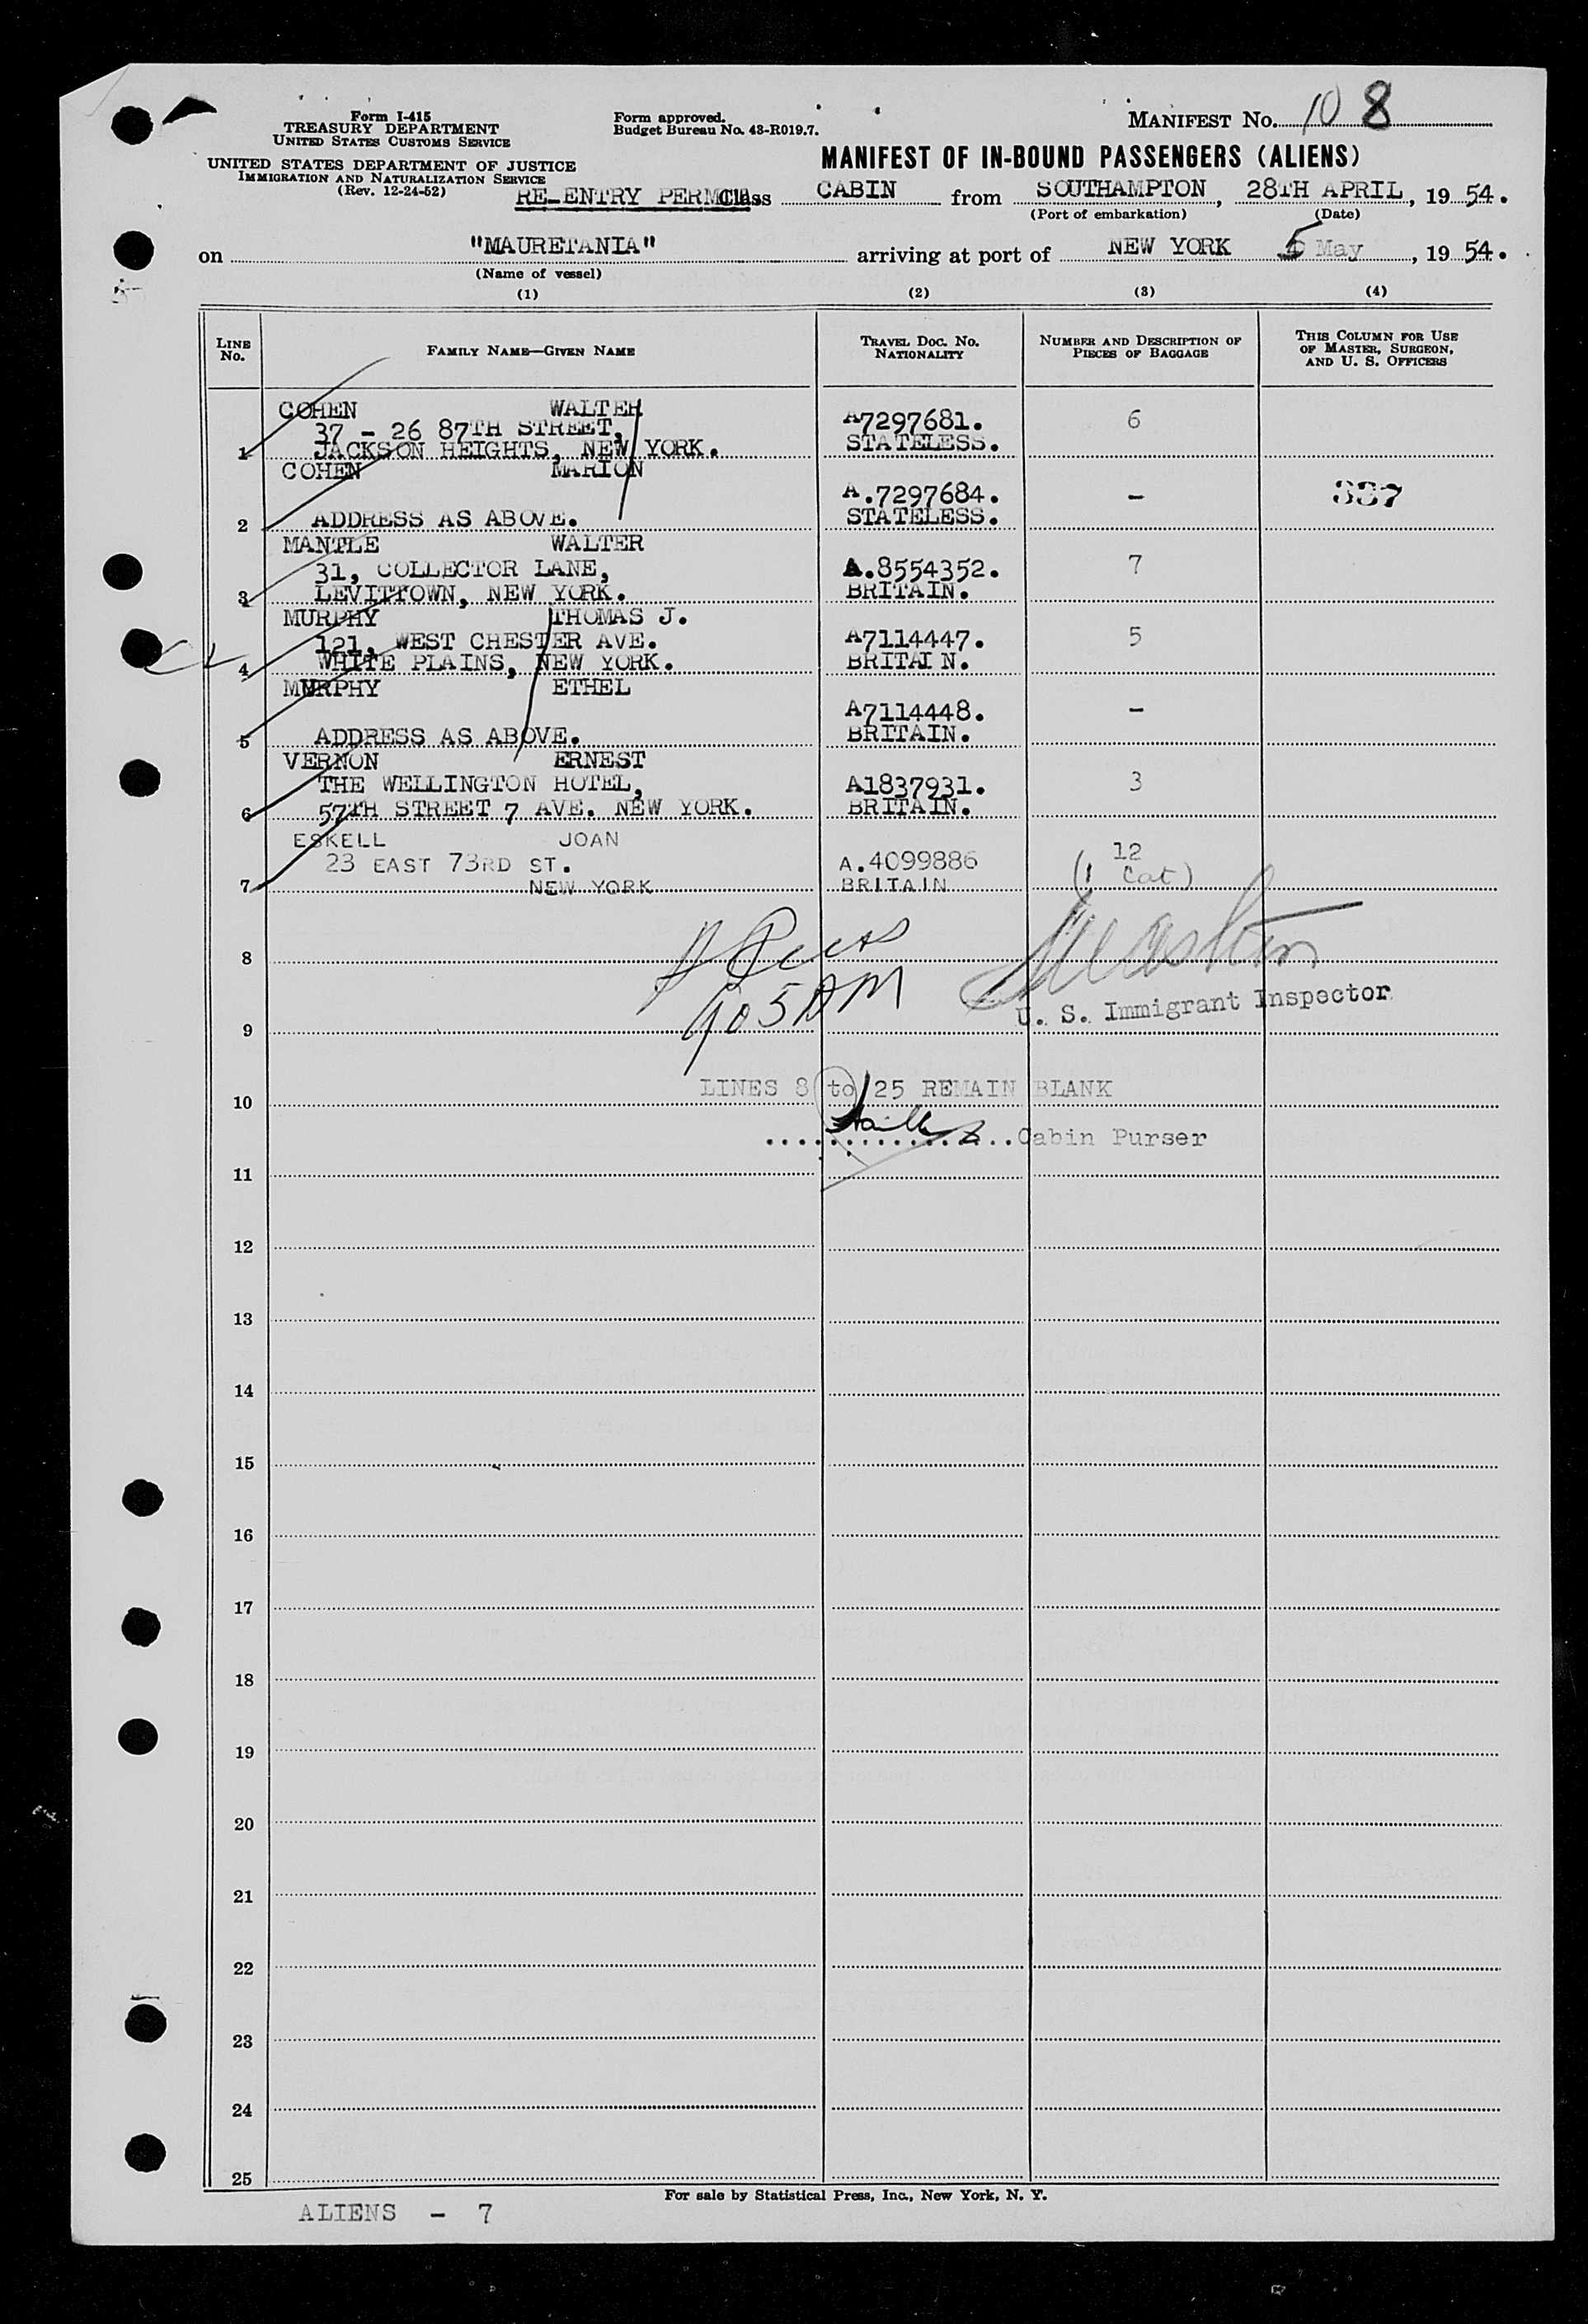 Form I-415
TREASURY DEPARTMENT
UNITED STATES CUSTOMS SERVICE
UNITED STATES DEPARTMENT OF JUSTICE
IMMIGRATION AND NATURALIZATION SERVICE
(Rev. 12-24-52)
Form approved.
Budget Bureau No. 43-R019.7.
MANIFEST No. 10 8
MANIFEST OF IN-BOUND PASSENGERS (ALIENS)
RE-ENTRY PERMIT Class CABIN from SOUTHAMPTON, 28TH APRIL, 19 54.
(Port of embarkation) (Date)
on "MAURETANIA" arriving at port of NEW YORK 5 May, 19 54.
(Name of vessel)
(1) (2) (3) (4)
LINE No. FAMILY NAME—GIVEN NAME TRAVEL DOC. NO. NATIONALITY NUMBER AND DESCRIPTION OF PIECES OF BAGGAGE THIS COLUMN FOR USE OF MASTER, SURGEON, AND U. S. OFFICERS
COHEN WALTER
37 - 26 87TH STREET, A7297681. 6
1 JACKSON HEIGHTS, NEW YORK. STATELESS.
COHEN MARION
A.7297684. - 337
2 ADDRESS AS ABOVE. STATELESS.
MANTLE WALTER
31, COLLECTOR LANE, A.8554352. 7
3 LEVITTOWN, NEW YORK. BRITAIN.
MURPHY THOMAS J.
121, WEST CHESTER AVE. A7114447. 5
4 WHITE PLAINS, NEW YORK. BRITAI N.
MURPHY ETHEL
A7114448. -
5 ADDRESS AS ABOVE. BRITAIN.
VERNON ERNEST
THE WELLINGTON HOTEL, A1837931. 3
6 57TH STREET 7 AVE. NEW YORK. BRITAIN.
ESKELL JOAN
23 EAST 73RD ST. A.4099886 12
7 NEW YORK BRITAIN (1 Cat)
8
905 AM
U. S. Immigrant Inspector
9
LINES 8 to 25 REMAIN BLANK
10
Cabin Purser
11
12
13
14
15
16
17
18
19
20
21
22
23
24
25
For sale by Statistical Press, Inc., New York, N. Y.
ALIENS - 7